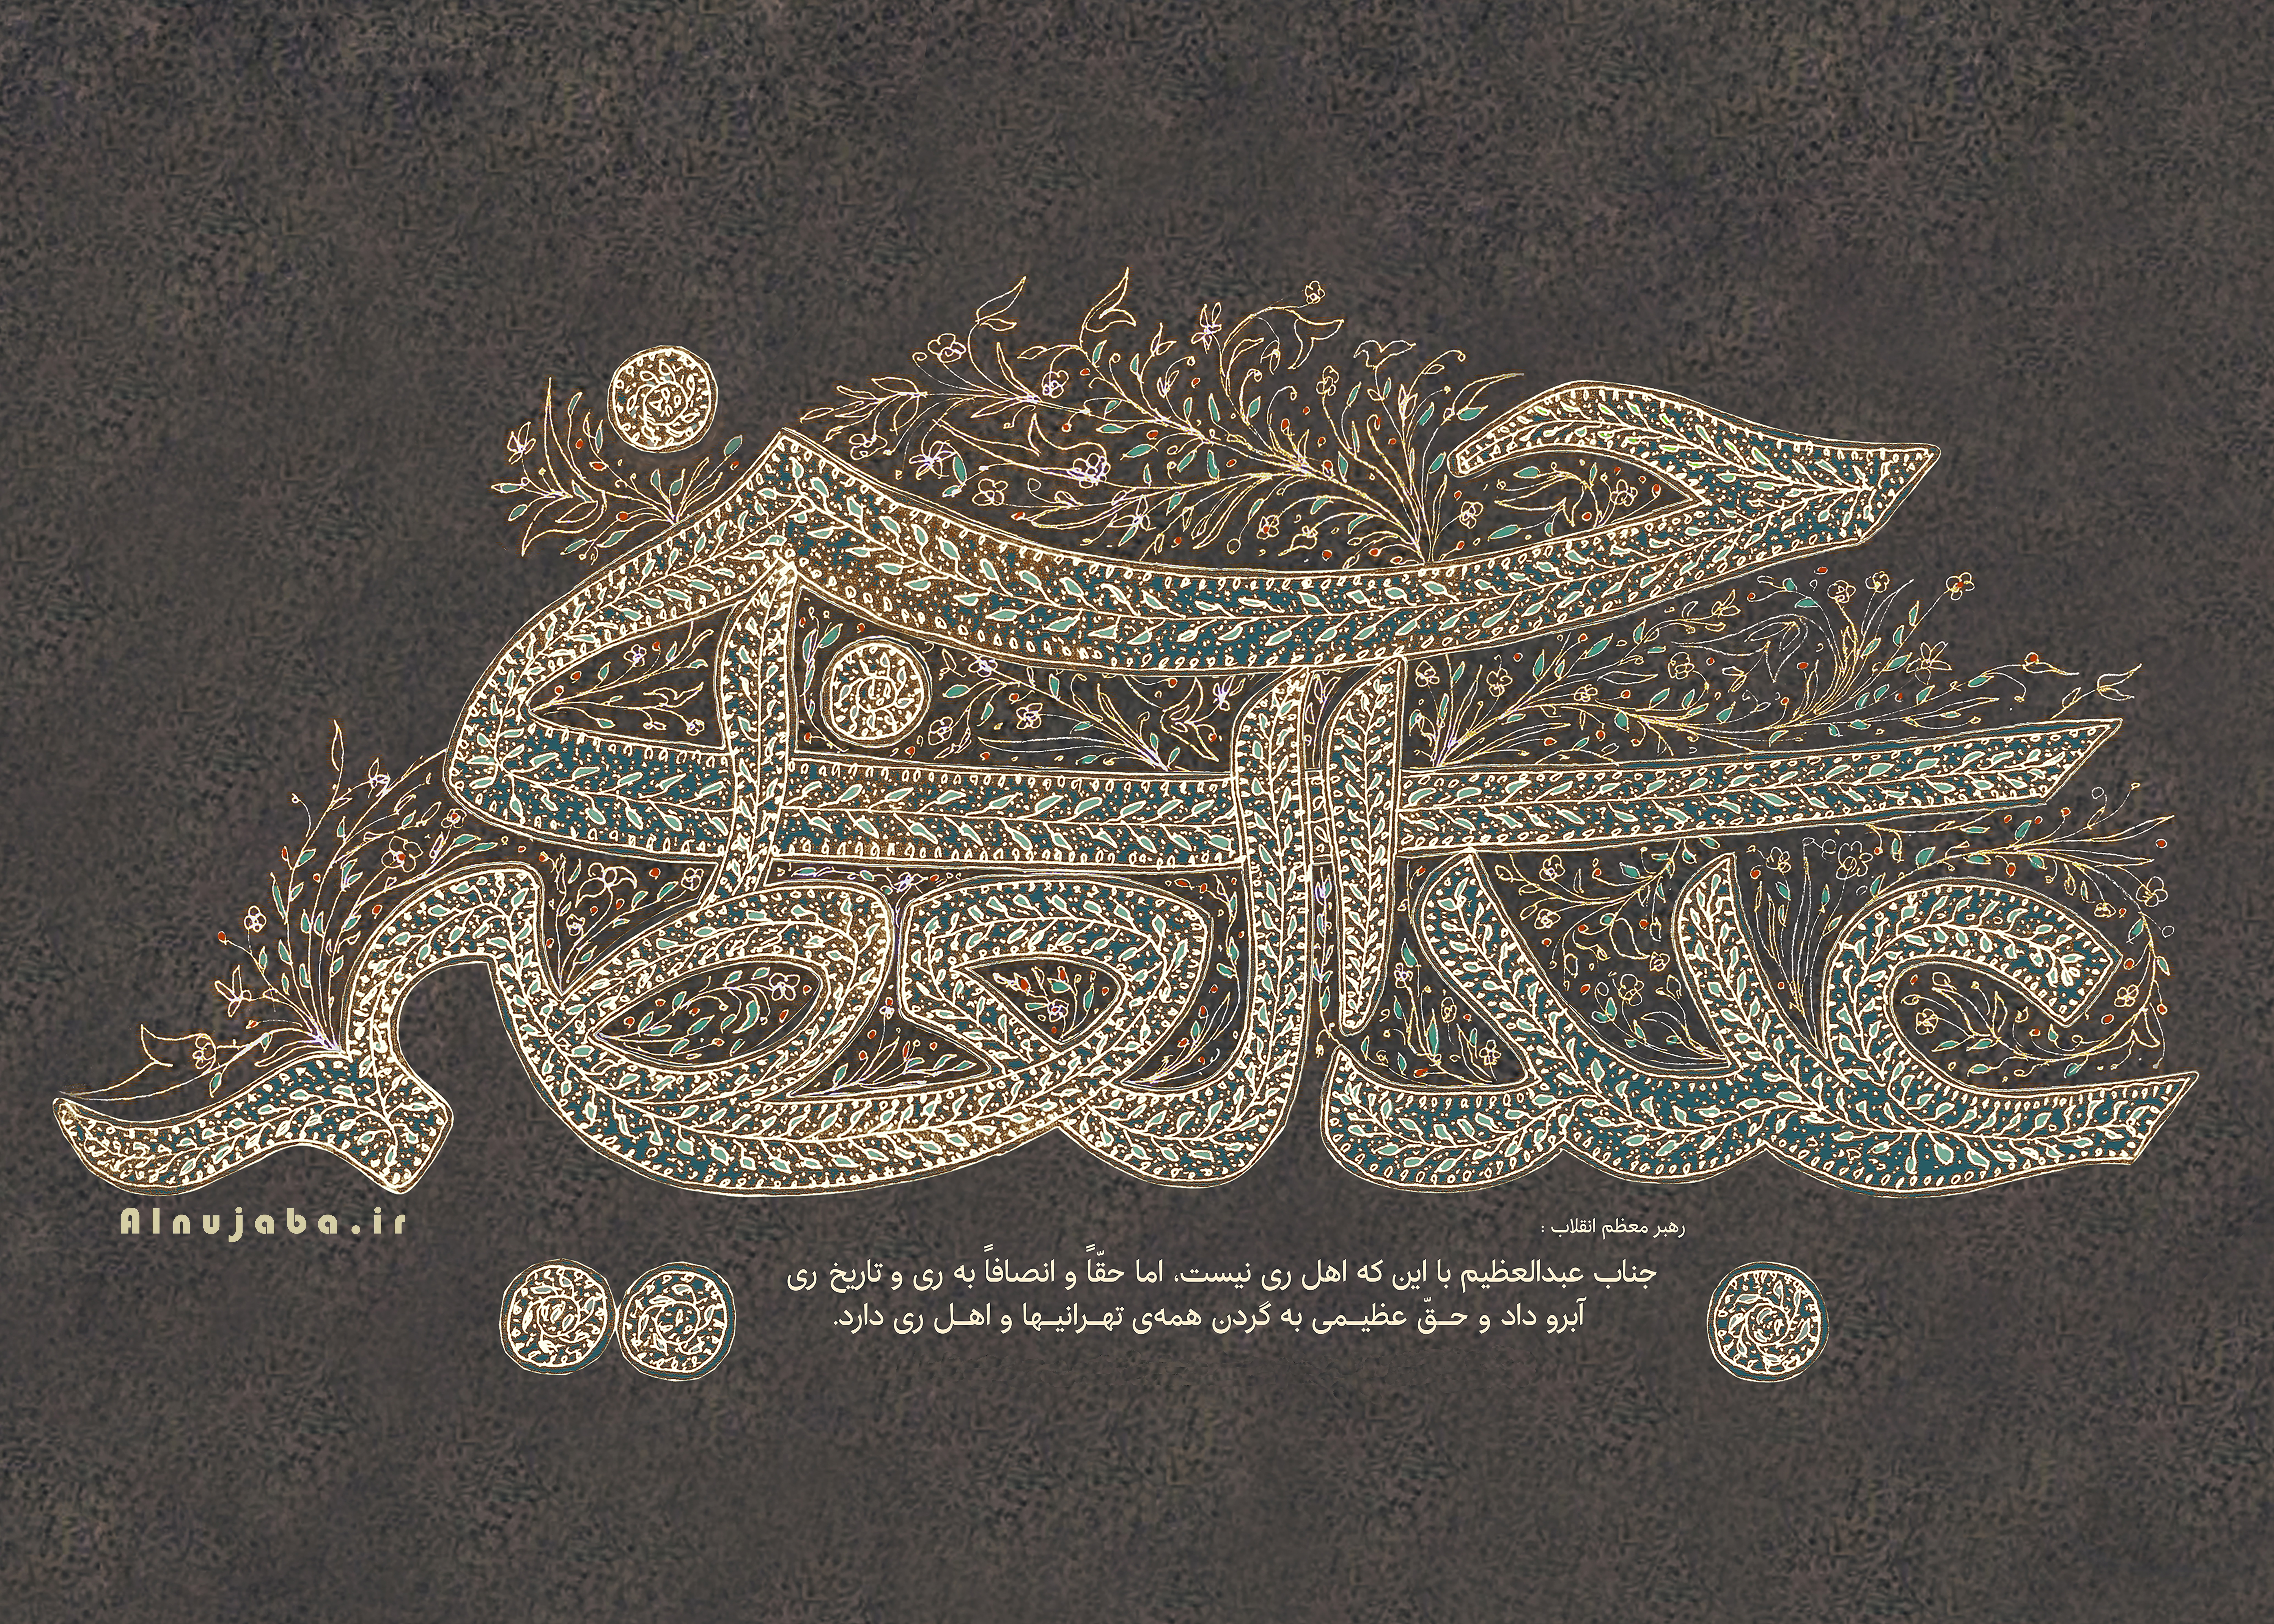 عبدالعظیم حسنی
Alnujaba.ir
رهبر معظم انقلاب :
جناب عبدالعظیم با این که اهل ری نیست، اما حقّاً و انصافاً به ری و تاریخ ری
آبرو داد و حـقّ عظیـمی به گردن همه‌ی تهـرانیـها و اهـل ری دارد.